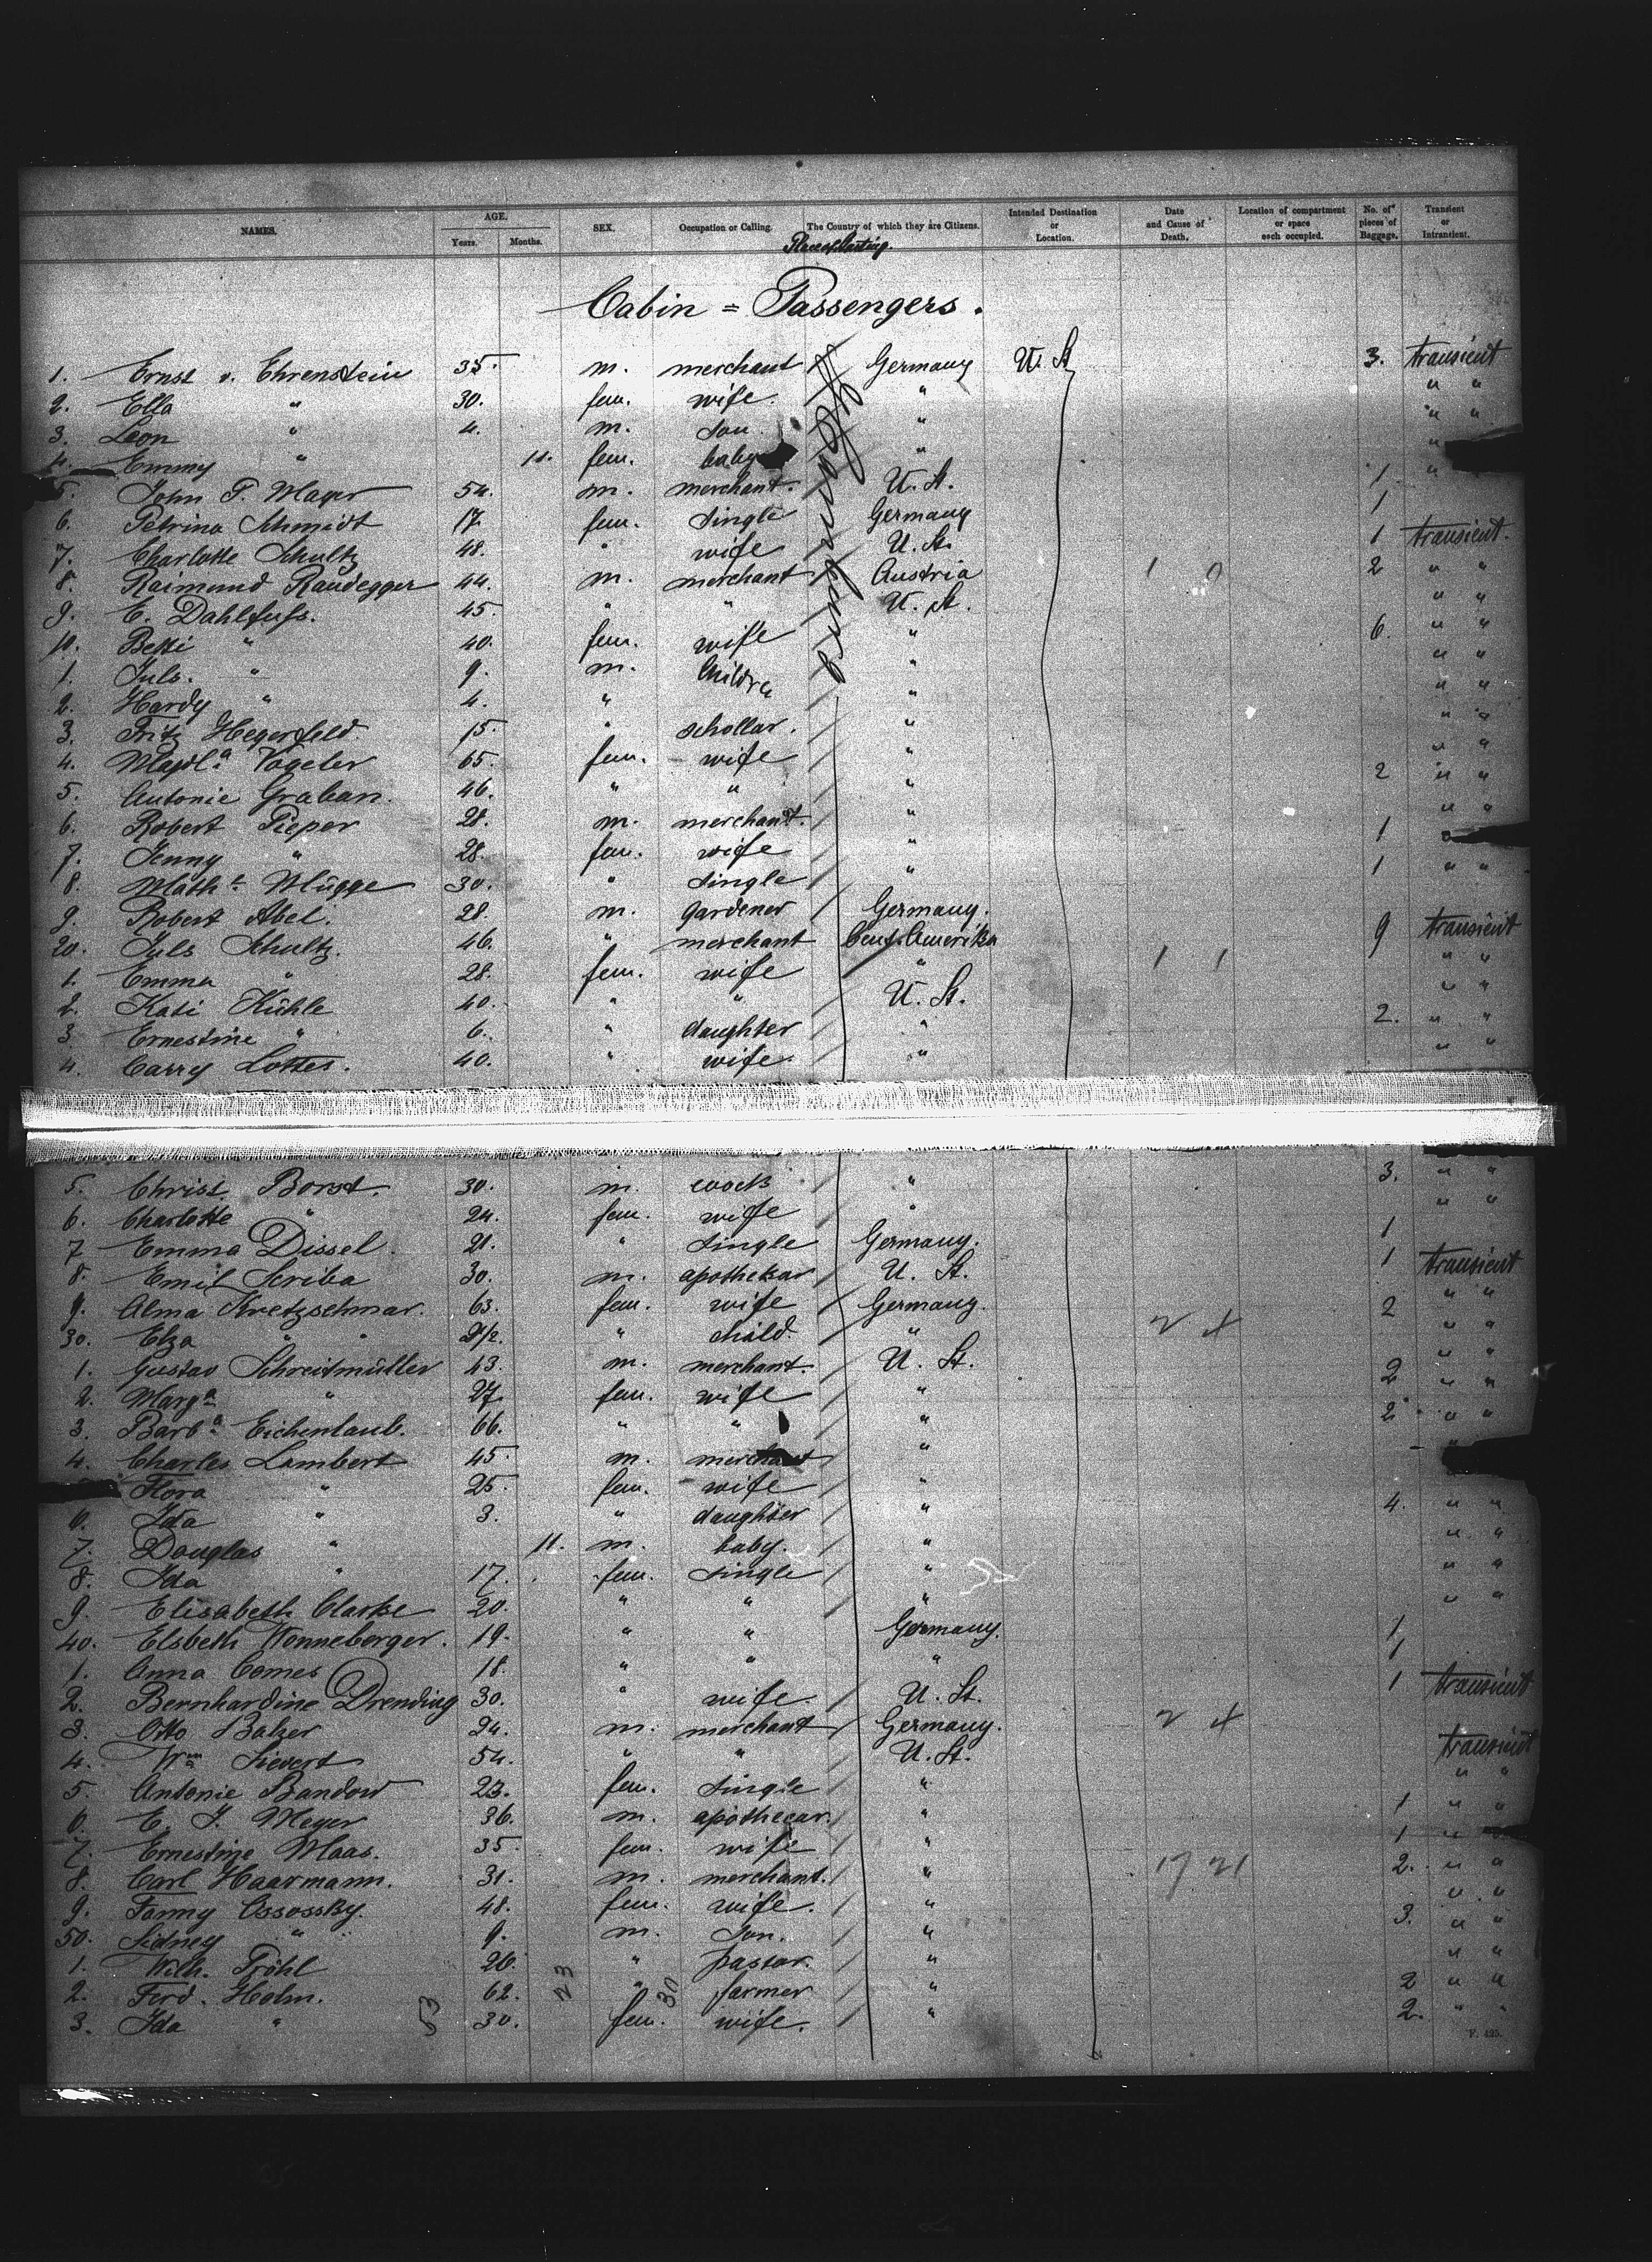 NAMES. AGE. Years. Months. SEX. Occupation or Calling. The Country of which they are Citizens. Intended Destination or Location. Date and Cause of Death. Location of compartment or space each occupied. No. of pieces of Baggage. Transient or Intransient.
Cabin = Passengers.
1. Ernst v. Ehrenstein 35. m. merchant Germany U. St. 3. transient
2. Ella " 30. fem. wife. " " "
3. Leon " 4. m. son " " "
4. Emmy " 11. fem. baby " "
5. John F. Mayer 54. m. merchant. U. St. 1 "
6. Petrina Schmidt 17. fem. single Germany 1
7. Charlotte Schultz 48. " wife U. St. 1 transient.
8. Raimund Raudegger 44. m. merchant Austria 2 " "
9. E. Dahlfuss. 45. " " U. St. " "
10. Betti " 40. fem. wife " 6. " "
1. Juls. " 9. m. " " "
2. Hardy " 4. " " " "
3. Fritz Hegerfeld 15. " schollar. " " "
4. Magdl.a Vogeler 65. fem. wife " " "
5. Antonie Graban. 46. " " " 2 " "
6. Robert Pieper 28. m. merchant. " " "
7. Jenny " 28. fem. wife " 1
8. Math.e Mügge 30. " single " 1 " "
9. Robert Abel. 28. m. gardener Germany.
20. Juls Schultz. 46. " merchant Cent. Amerika 9 transient
1. Emma " 28. fem. wife " 1 1 " "
2. Kati Kühle 40. " " U. St. " "
3. Ernestine " 6. " daughter " 2. " "
4. Carry Lottes. 40. " wife. " " "
5. Christ. Borst. 30. m. " 3. " "
6. Charlotte " 24. fem. wife " " "
7 Emma Dissel. 21. " single Germany. 1
8. Emil Scriba 30. m. apothekar U. St. 1 transient
9. Alma Kretzschmar. 63. fem. wife Germany. 2 " "
30. Elza " " 2 1/2. " child " " "
1. Gustav Schreitmüller 43. m. merchant. U. St. " "
2. Marg.a " 27. fem. wife " 2 " "
3. Barb.a Eichenlaub. 66. " " " 2 " "
4. Charles Lambert 45. m. merchant " "
Flora " 25. fem. wife "
6. Ida " 3. " daughter " 4. " "
7. Douglas " 11. m. baby. " " "
8. Ida " 17. fem. single " " "
9. Elisabeth Clarke 20. " " " " "
40. Elsbeth Wonneberger. 19. " " Germany. 1
1. Anna Comes 18. " " " 1
2. Bernhardine Drending 30. " wife. U. St. 1 transient
3. Otto Balzer 24. m. merchant Germany.
4. Wm Sievert 54. " " U. St. transient
5. Antonie Bandow 23. fem. single " " "
6. E. J. Meyer 36. m. apothecar. " 1 " "
7. Ernestine Maas. 35. fem. wife " 1 "
8. Carl Haarmann. 31. m. merchant. " 17 21 2. " "
9. Fanny Ossossky. 48. fem. wife. " " "
50. Sidney " 9. m. son. " 3. " "
1. Wilh. Pröhl 26. " pastor. " " "
2. Ferd. Holm. 62. " farmer " 2 " "
3. Ida " 30. fem. wife. " 2. " "
53 23 30
F. 425.